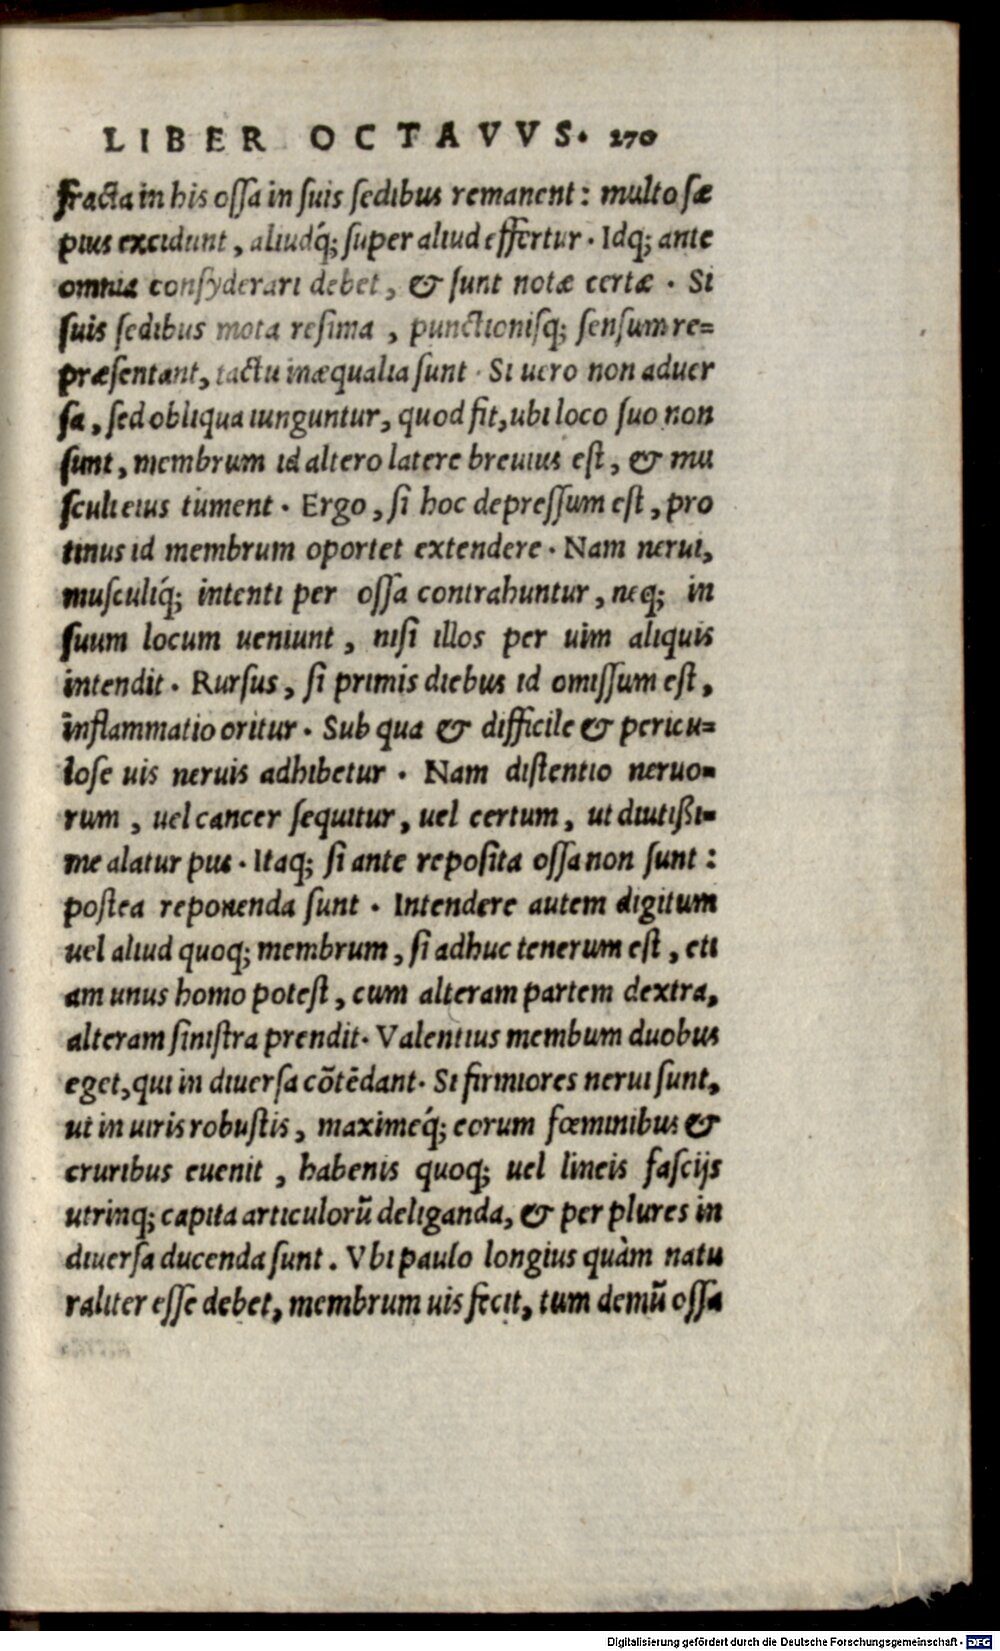 LIBER OCTAVVS. 270
fracta in his ossa in suis sedibus remanent: multo sæ
pius excidunt, aliudq́; super aliud effertur. Idq; ante
omnia consyderari debet, & sunt notæ certæ. Si
suis sedibus mota resima, punctionisq; sensum re=
præsentant, tactu inæqualia sunt. Si uero non aduer
sa, sed obliqua iunguntur, quod fit, ubi loco suo non
sunt, membrum id altero latere breuius est, & mu
sculi eius tument. Ergo, si hoc depressum est, pro
tinus id membrum oportet extendere. Nam nerui,
musculiq́; intenti per ossa contrahuntur, neq; in
suum locum ueniunt, nisi illos per uim aliquis
intendit. Rursus, si primis diebus id omissum est,
inflammatio oritur. Sub qua & difficile & pericu=
lose uis neruis adhibetur. Nam distentio neruo=
rum, uel cancer sequitur, uel certum, ut diutißi=
me alatur pus. Itaq; si ante reposita ossa non sunt:
postea reponenda sunt. Intendere autem digitum
uel aliud quoq; membrum, si adhuc tenerum est, eti
am unus homo potest, cum alteram partem dextra,
alteram sinistra prendit. Valentius membum duobus
eget, qui in diuersa cõtẽdant. Si firmiores nerui sunt,
ut in uiris robustis, maximeq́; eorum fœminibus &
cruribus euenit, habenis quoq; uel lineis fascijs
utrinq; capita articulorũ deliganda, & per plures in
diuersa ducenda sunt. Vbi paulo longius quàm natu
raliter esse debet, membrum uis fecit, tum demũ ossa
Digitalisierung gefördert durch die Deutsche Forschungsgemeinschaft - DFG